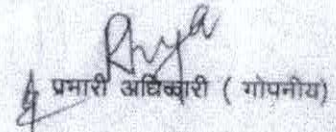 प्रभारी अधिकारी ( गोपनीय)